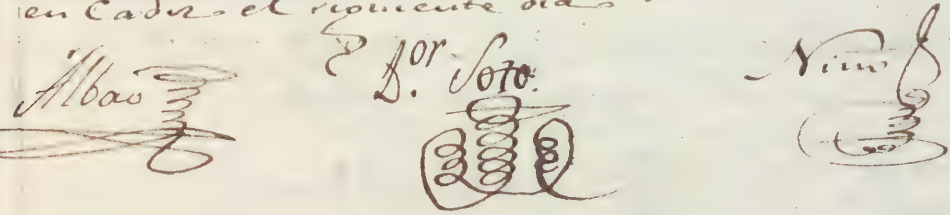 en Cadiz el siguiente dia
Albao D.or Soto. Nino